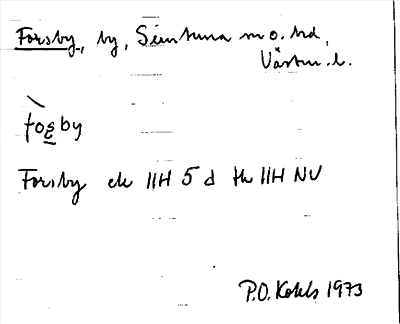 Forsby, by, Simtuna sn o. hd,
Västm. l.
fo̱sby
Forsby ek 11H 5 d tk 11H NV
P.O. Kohls 1973